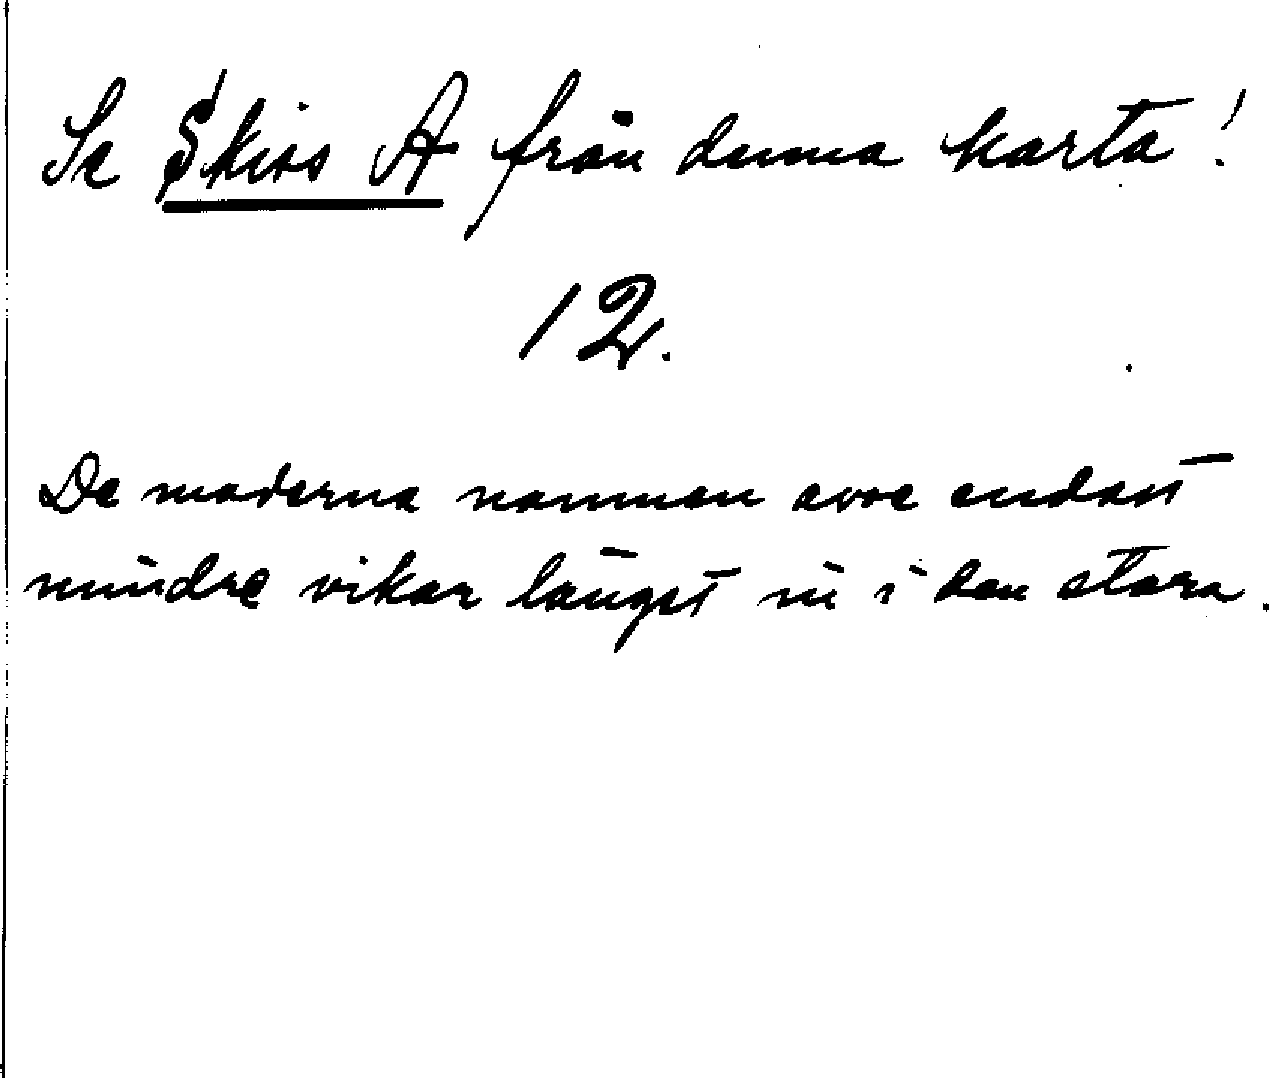 Se Skiss A från denna karta!
12.
De moderna namnen avse endast
mindre vikar längst in i den stora.